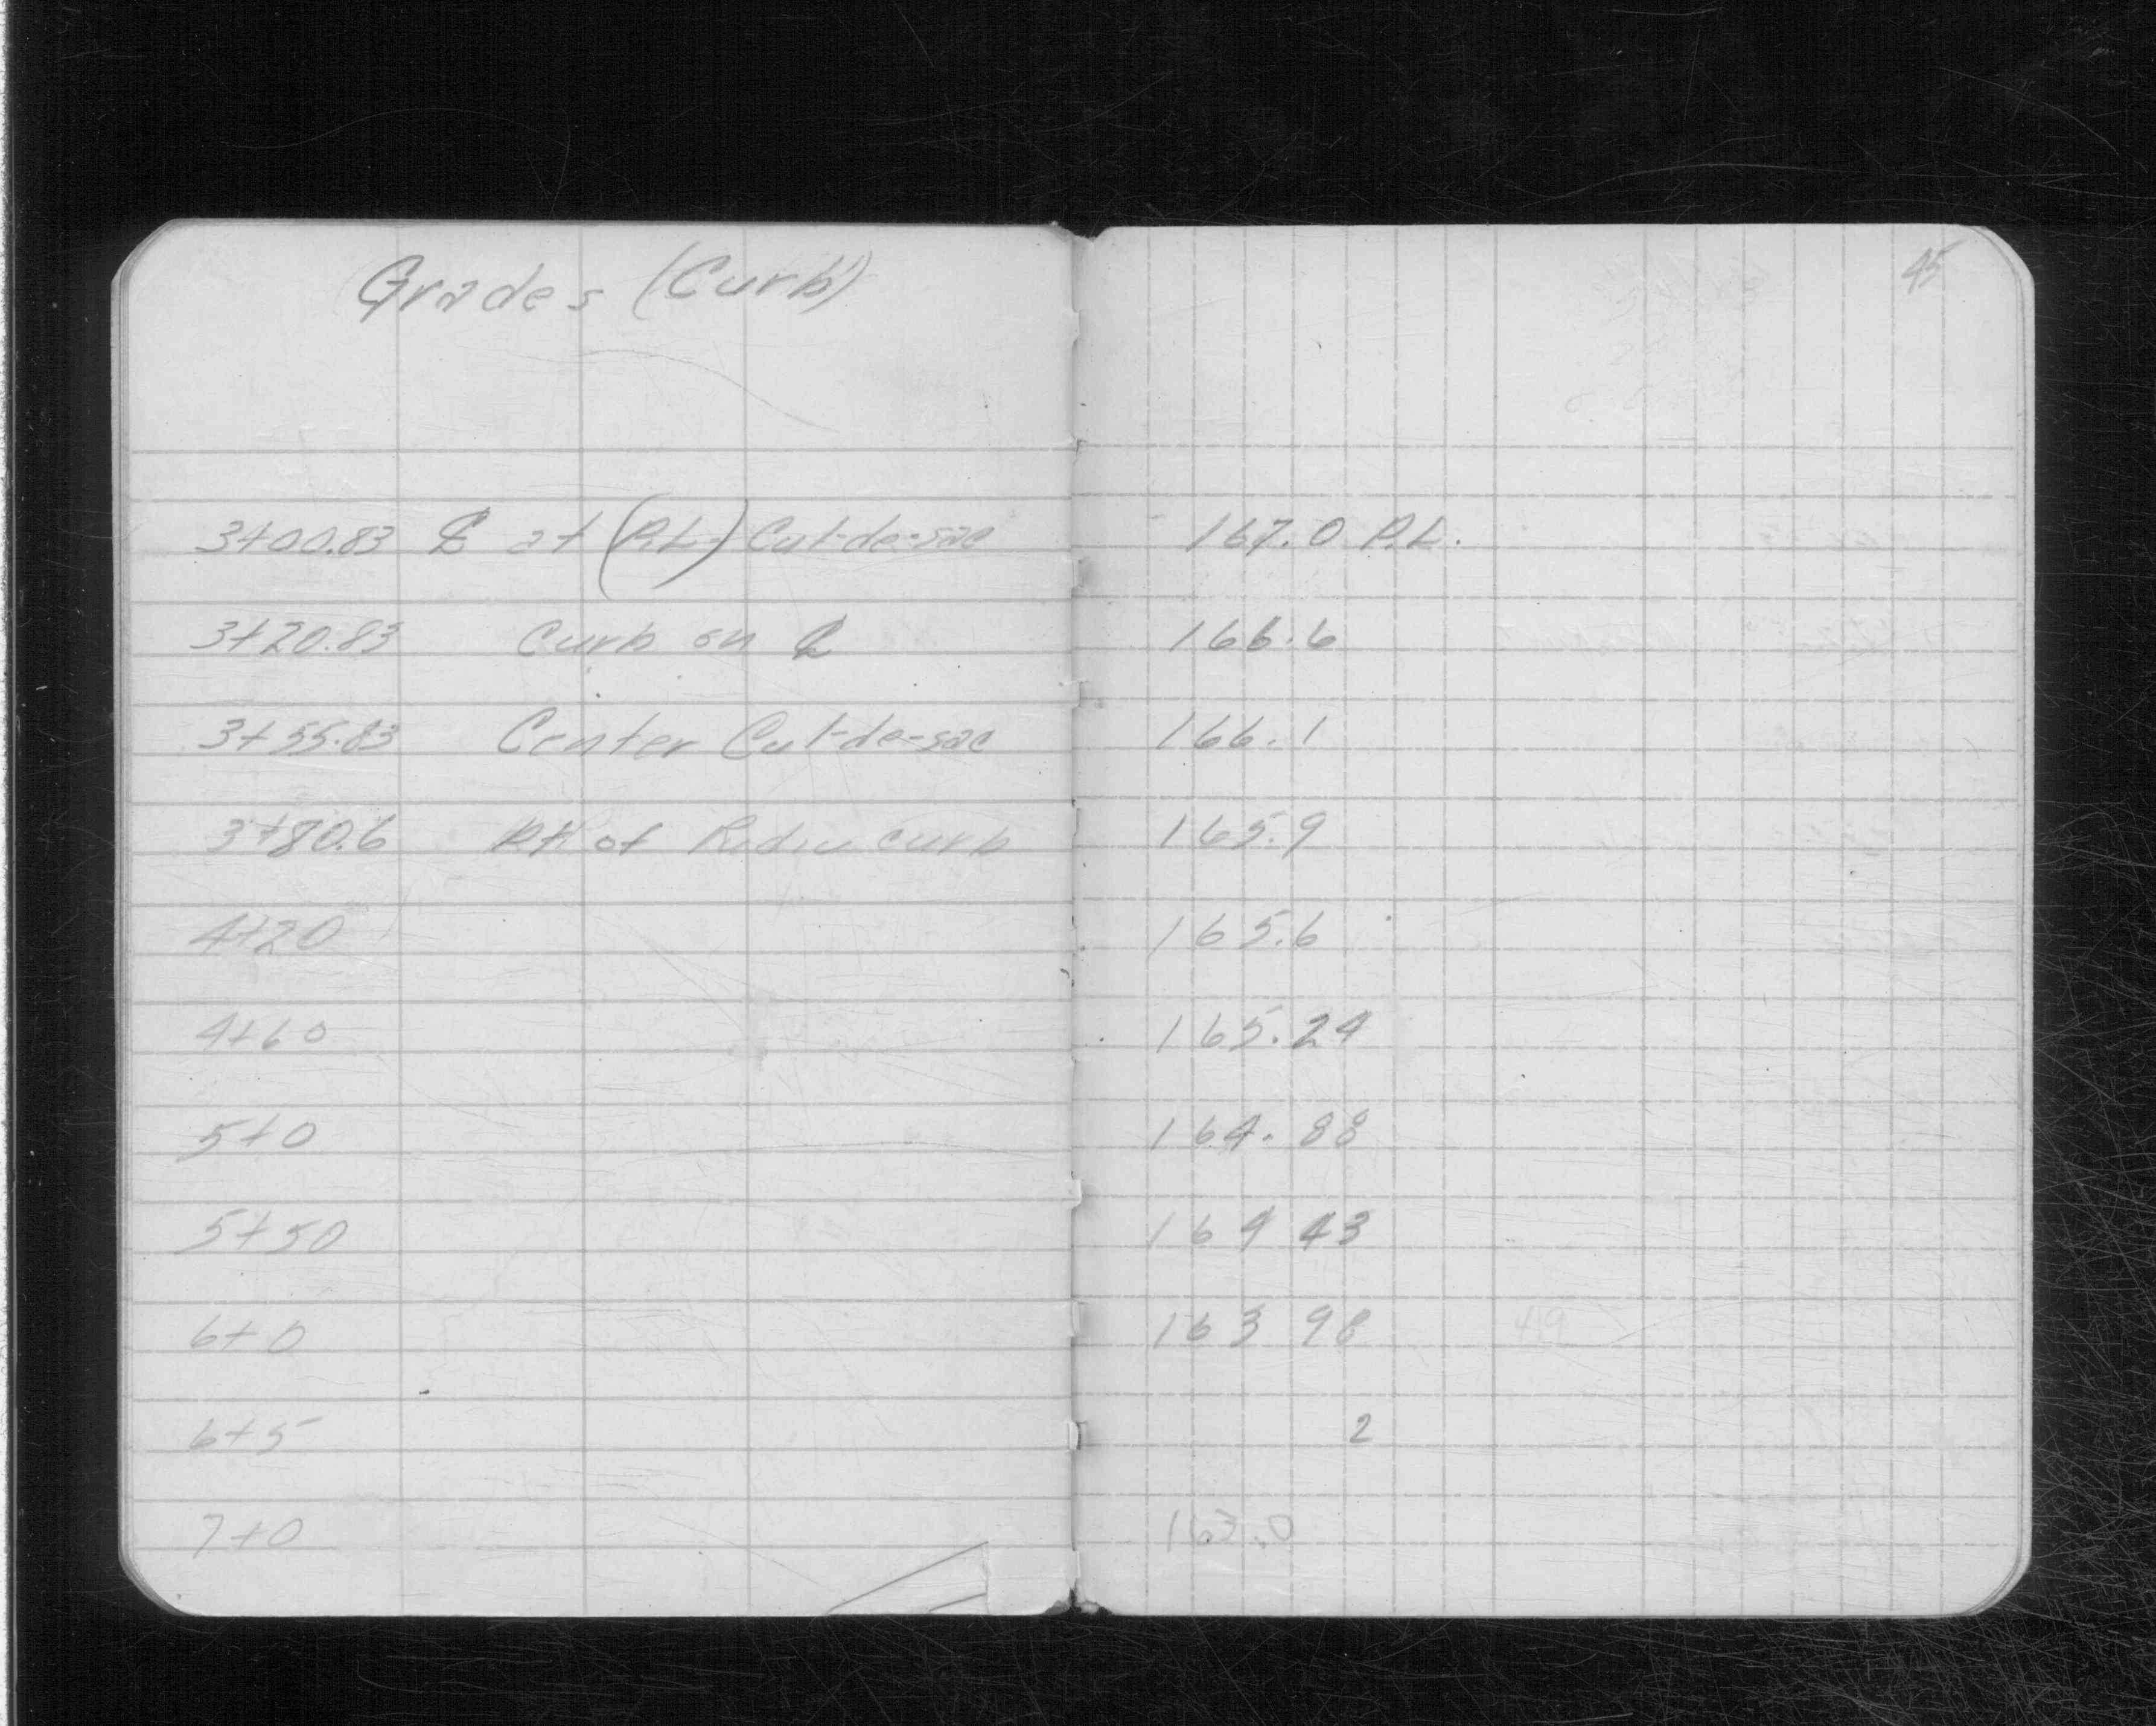 Grades (Curb)
45
3+00.83 ℄ at (P.L.) Cul-de-sac 167.0 P.L.
3+20.83 Curb on ℄ 166.6
3+55.83 Center Cul-de-sac 166.1
3+80.6 of curb 165.9
4+20 165.6
4+60 165.24
5+0 164.88
5+50 164 43
6+0 163 98 49
6+5 2
7+0 163.0